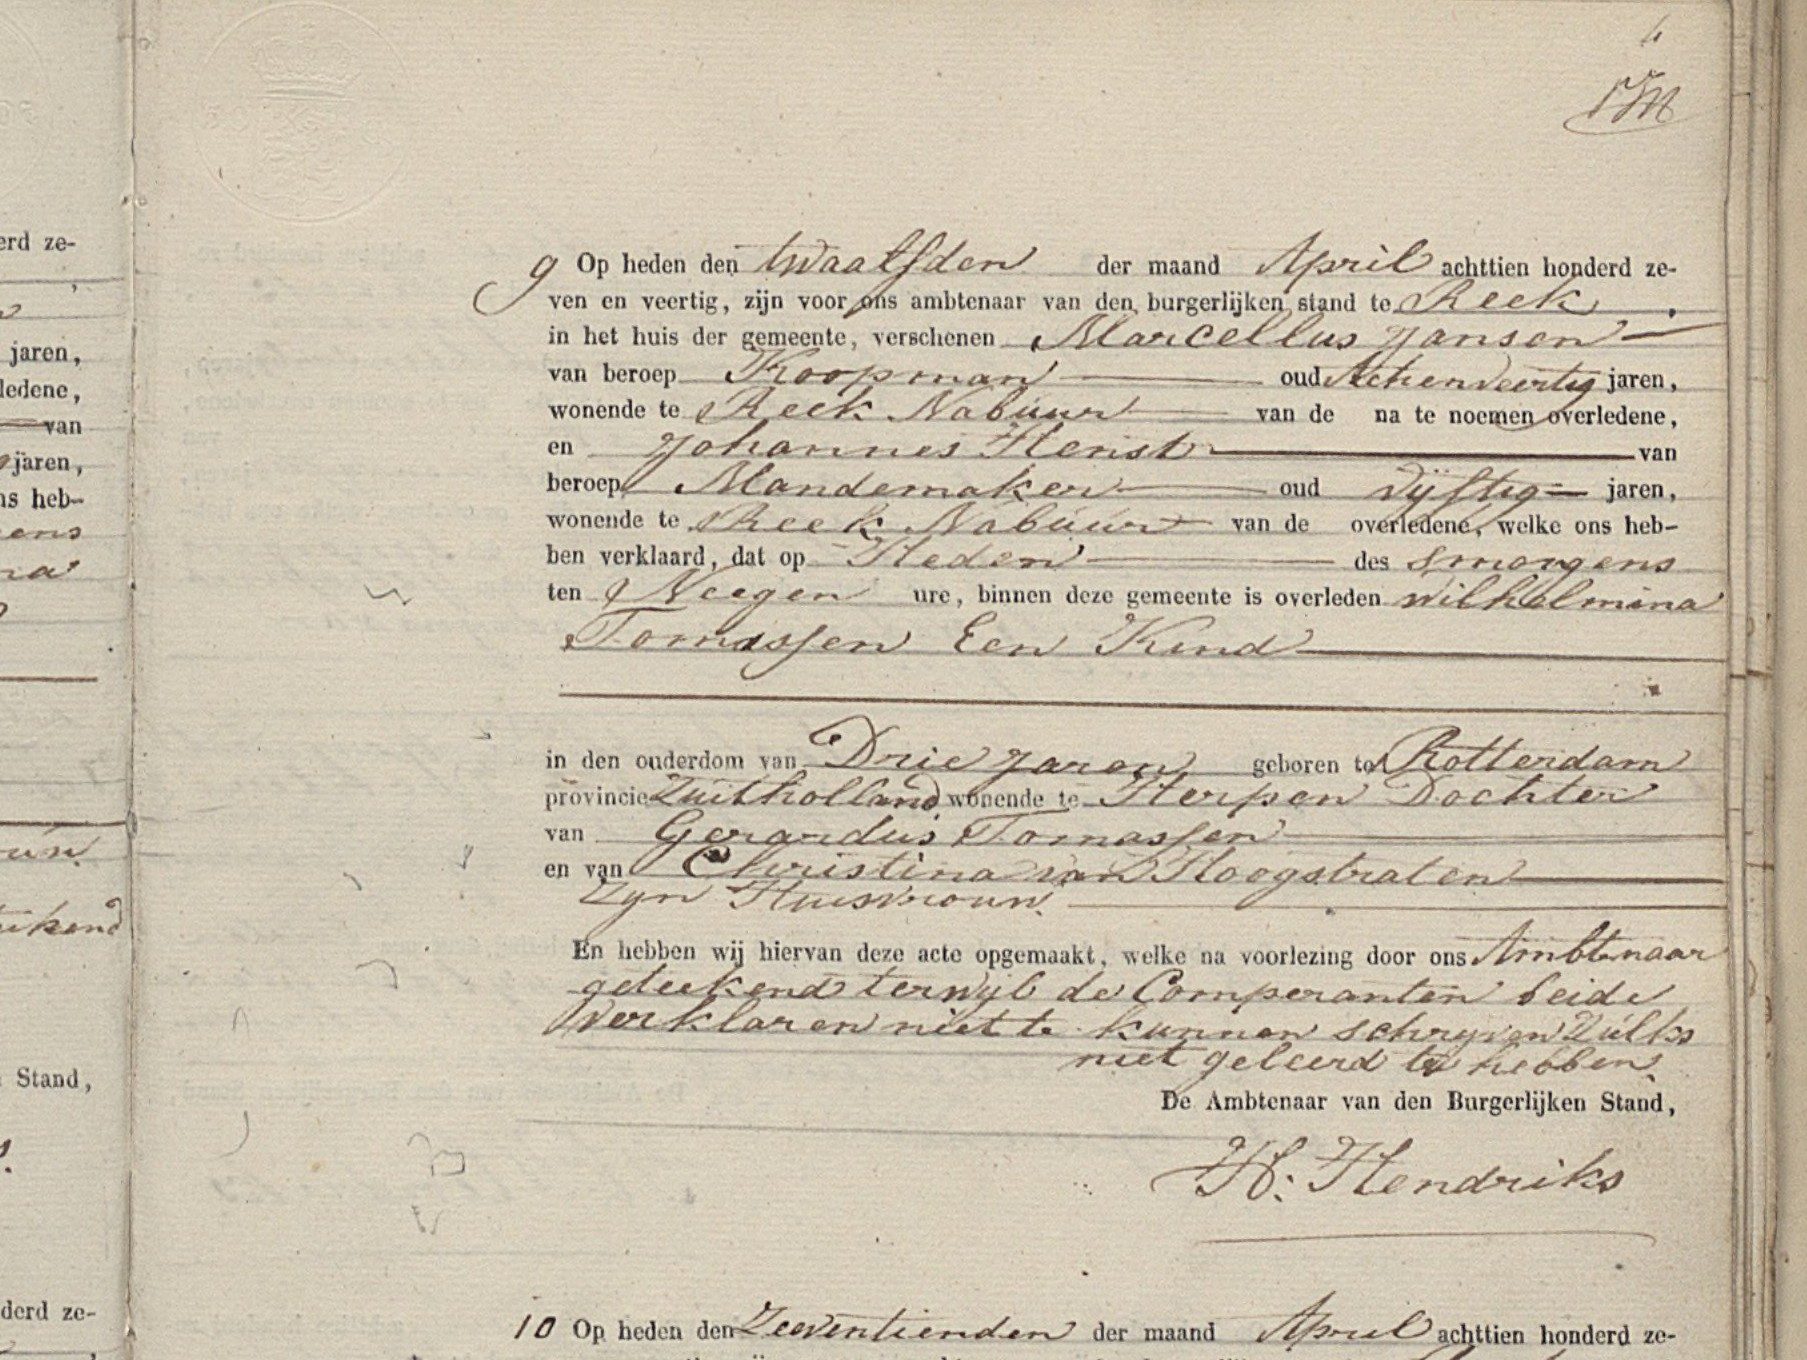 erd ze-
jaren,
ledene,
van
jaren,
ns heb-
ens
Stand,
derd ze-
9 Op heden den twaalfden der maand April achttien honderd ze-
ven en veertig, zijn voor ons ambtenaar van den burgerlijken stand te Reek
in het huis der gemeente, verschenen Marcellus Jansen
van beroep Koopman oud Achenveertig jaren,
wonende te Reek Nabuur van de na te noemen overledene,
en Johannes Henst van
beroep Mandemaker oud Vijftig jaren,
wonende te Reek Nabuur van de overledene, welke ons heb-
ben verklaard, dat op Heden des smorgens
ten Neegen ure, binnen deze gemeente is overleden Wilhelmina
Tomassen Een Kind
in den ouderdom van Drie Jaren geboren te Rotterdam
provincie Zuitholland wonende te Herpen Dochter
van Gerardus Tomassen
en van Christina van Hoogstraten
Zyn Huisvrouw.
En hebben wij hiervan deze acte opgemaakt, welke na voorlezing door ons Ambtenaar
geteekend terwyl de Comperanten beide
verklaren niet te kunnen schryven Zulks
niet geleerd te hebben.
De Ambtenaar van den Burgerlijken Stand,
H. Hendriks
10 Op heden den Zeeventienden der maand April achttien honderd ze-